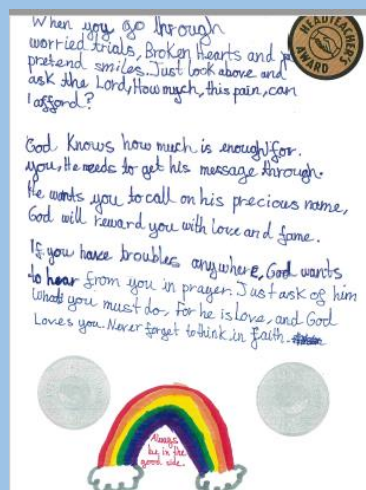 When you go through
worried trials, Broken Hearts and
pretend smiles. Just look above and
ask the Lord, How much, this pain, can
I afford?
God Knows how much is enough for.
you, He needs to get his message through.
He wants you to call on his precious name,
God will reward you with love and fame.
If you have troubles anywhere, God wants
to hear from you in prayer. Just ask of him
What you must do, For he is love, and God
Loves you. Never forget to think in faith.
HEADTEACHER'S
AWARD
Always
be in the
good side.